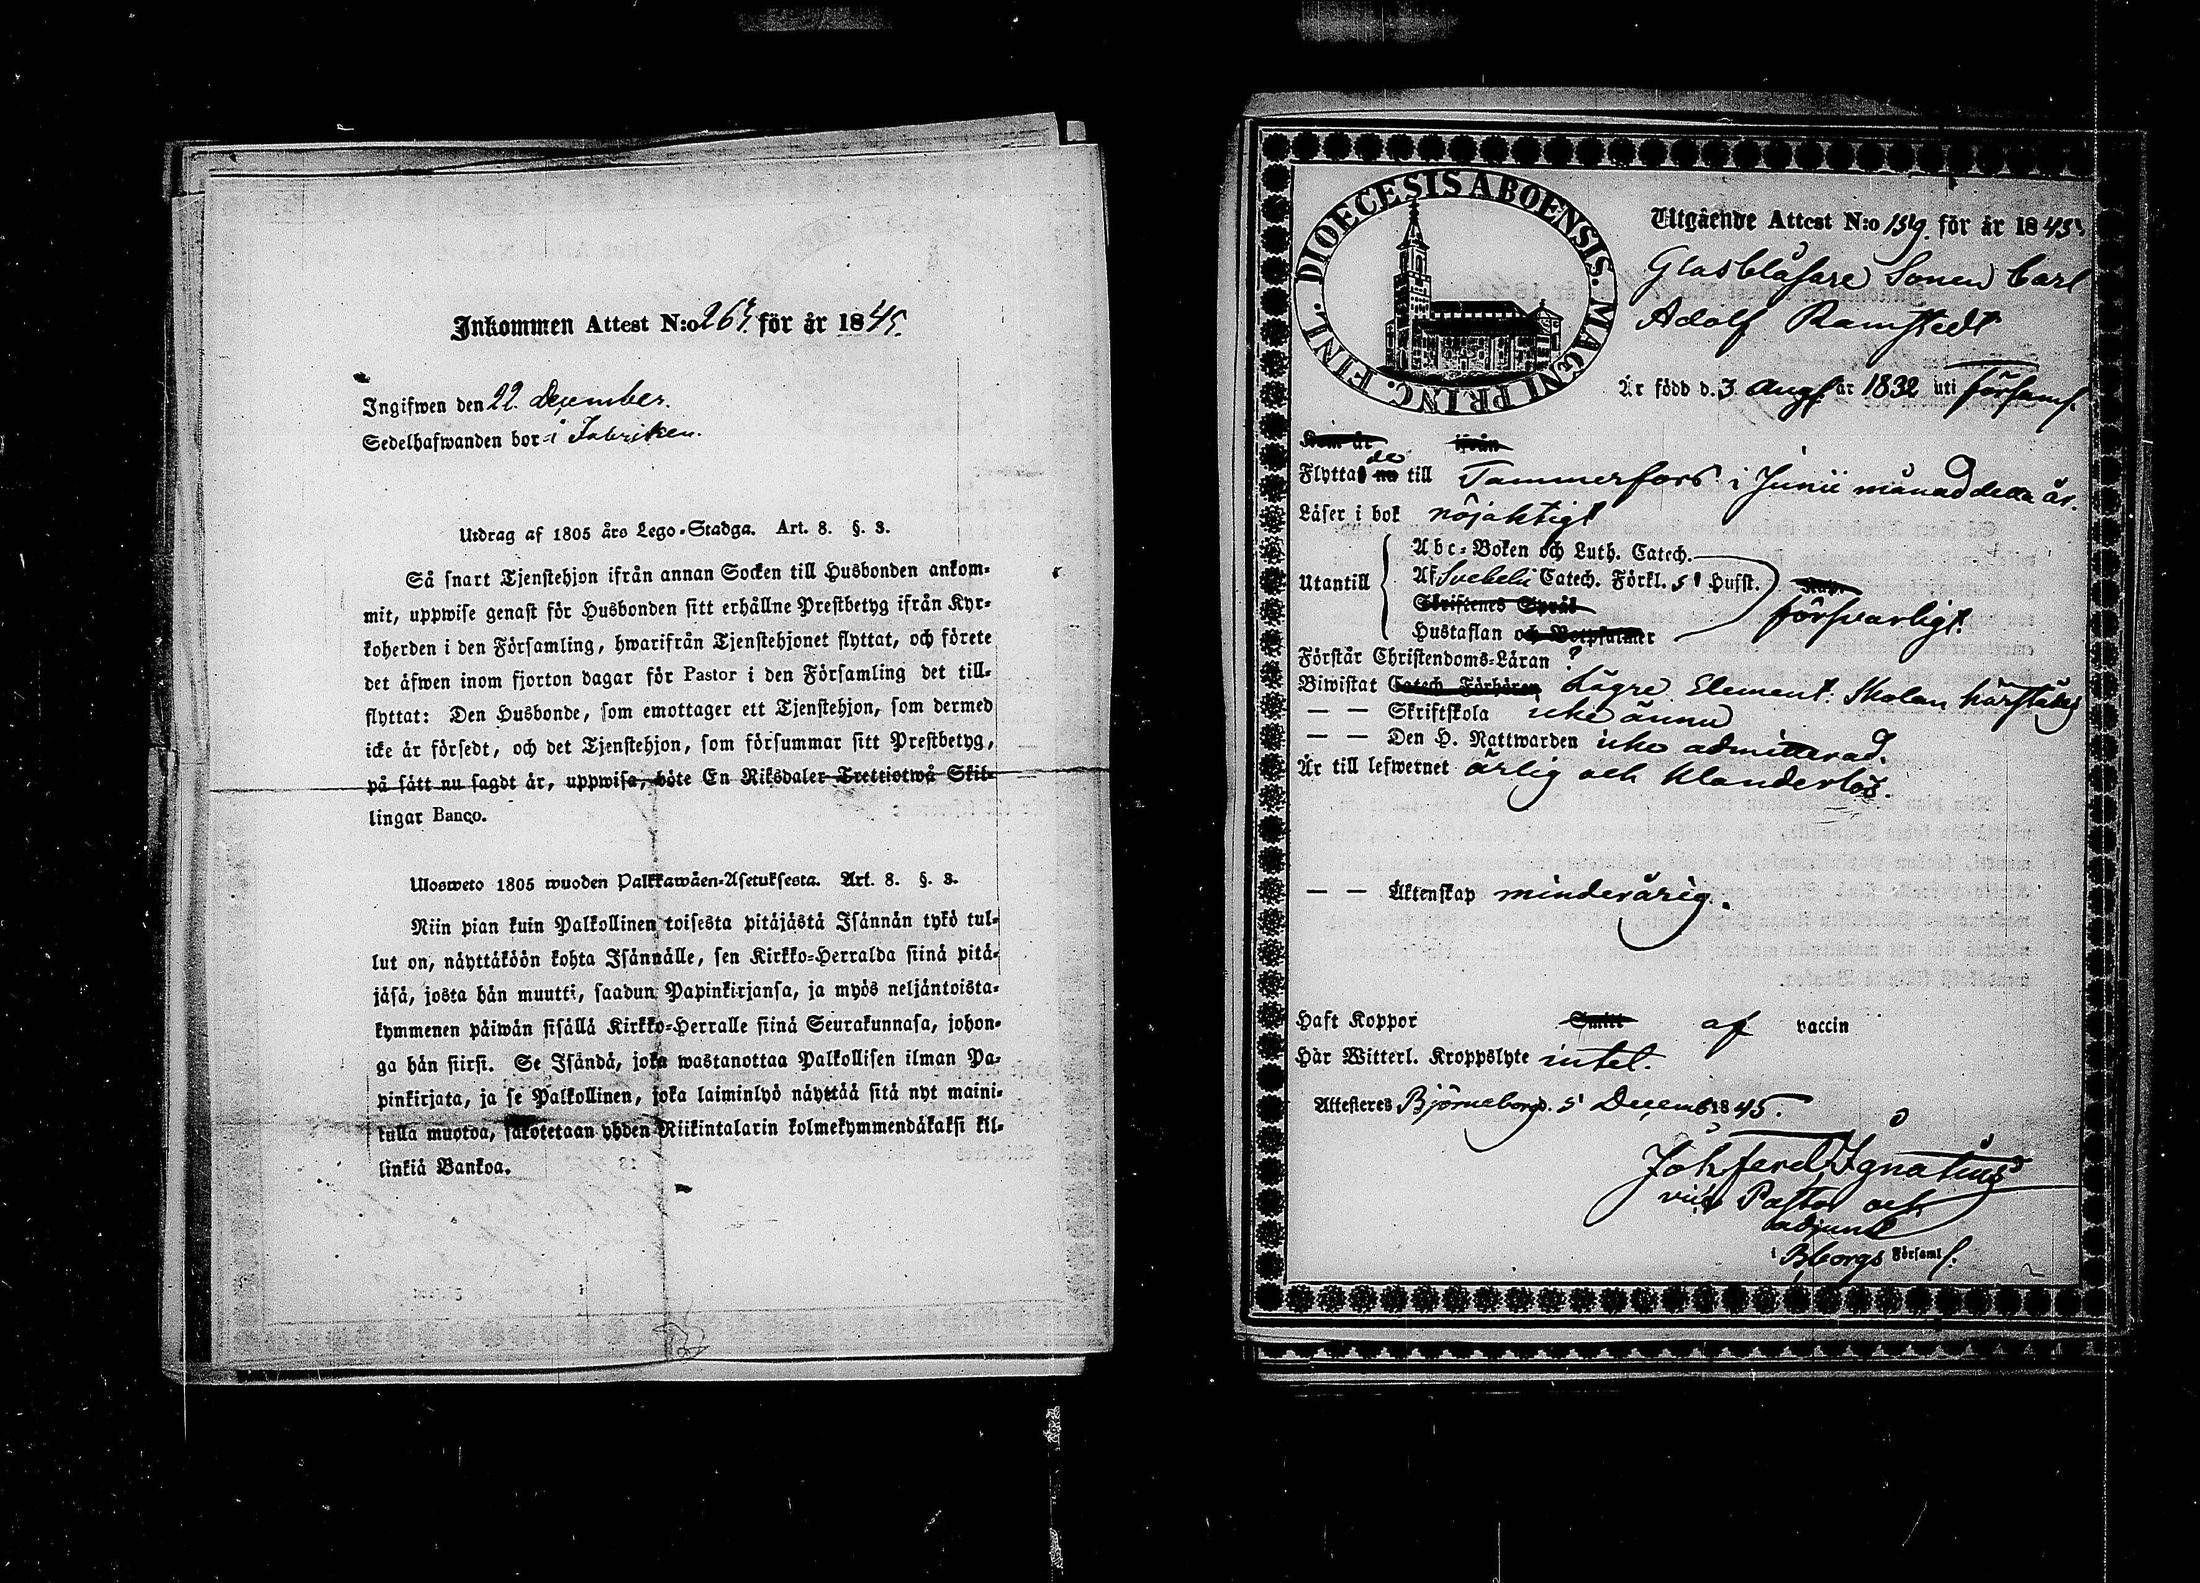 Inkommen Attest N:o 267. för år 1845.
Ingifwen den 22. December.
Sedelhafwanden bor i Fabriken.
Utdrag af 1805 års Lego-Stadga. Art. 8. §. 3.
Så snart Tjenstehjon ifrån annan Socken till Husbonden ankom-
mit, uppwise genast för Husbonden sitt erhållne Prestbetyg ifrån Kyr-
koherden i den Församling, hwarifrån Tjenstehjonet flyttat, och förete
det äfwen inom fjorton dagar för Pastor i den Församling det till-
flyttat: Den Husbonde, som emottager ett Tjenstehjon, som dermed
icke är försedt, och det Tjenstehjon, som försummar sitt Prestbetyg,
på sätt nu sagdt är, uppwisa, böte En Riksdaler Trettiotwå Skil-
lingar Banco.
Ulosweto 1805 wuoden Palkkawäen-Asetuksesta. Art. 8. §. 3.
Niin pian kuin Palkollinen toisesta pitäjästä Isännän tykö tul-
lut on, näyttäköön kohta Isännälle, sen Kirkko-Herralda siinä pitä-
jäsä, josta hän muutti, saadun Papinkirjansa, ja myös neljäntoista-
kymmenen päiwän sisällä Kirkko-Herralle siinä Seurakunnasa, johon-
ga hän siirsi. Se Isändä, joka wastanottaa Palkollisen ilman Pa-
pinkirjata, ja se Palkollinen, joka laiminlyö näyttää sitä nyt maini-
tulla muotoa, sakotetaan yhden Riikintalarin kolmekymmendäkaksi kil-
linkiä Bankoa.
DIOECESIS ABOENSIS. MAGNI PRINC. FINL.
Utgående Attest N:o 159. för år 1845.
Glasblåsare Sonen Carl
Adolf Ramstedt
Är född d. 3 Aug. år 1832 uti förssaml.
Kom år ifrån
Flyttade nu till Tammerfors i Junii månad detta år.
Läser i bok nöjaktigt
Abc-Boken och Luth. Catech.
Utantill Af Svebeli Catech. Förkl. 5 Hufst.
försvarligt.
Skriftenes Språk
Hustaflan och Botpsalmer
Förstår Christendoms-Läran ?
Biwistat Catech. Förhören Lägre Element. Skolan härstädes
— — Skriftskola icke ännu
— — Den H. Nattwarden icke admitterad.
Är till lefwernet ärlig och klanderlös.
— — Äktenskap minderårig.
Haft Koppor Smitt af vaccin
Här Witterl. Kroppslyte intet.
Attesteres Björneborg d. 5 Decemb 1845.
Joh Ferd Ignatius
vice Pastor och
adjunct
i Bborgs Församl.